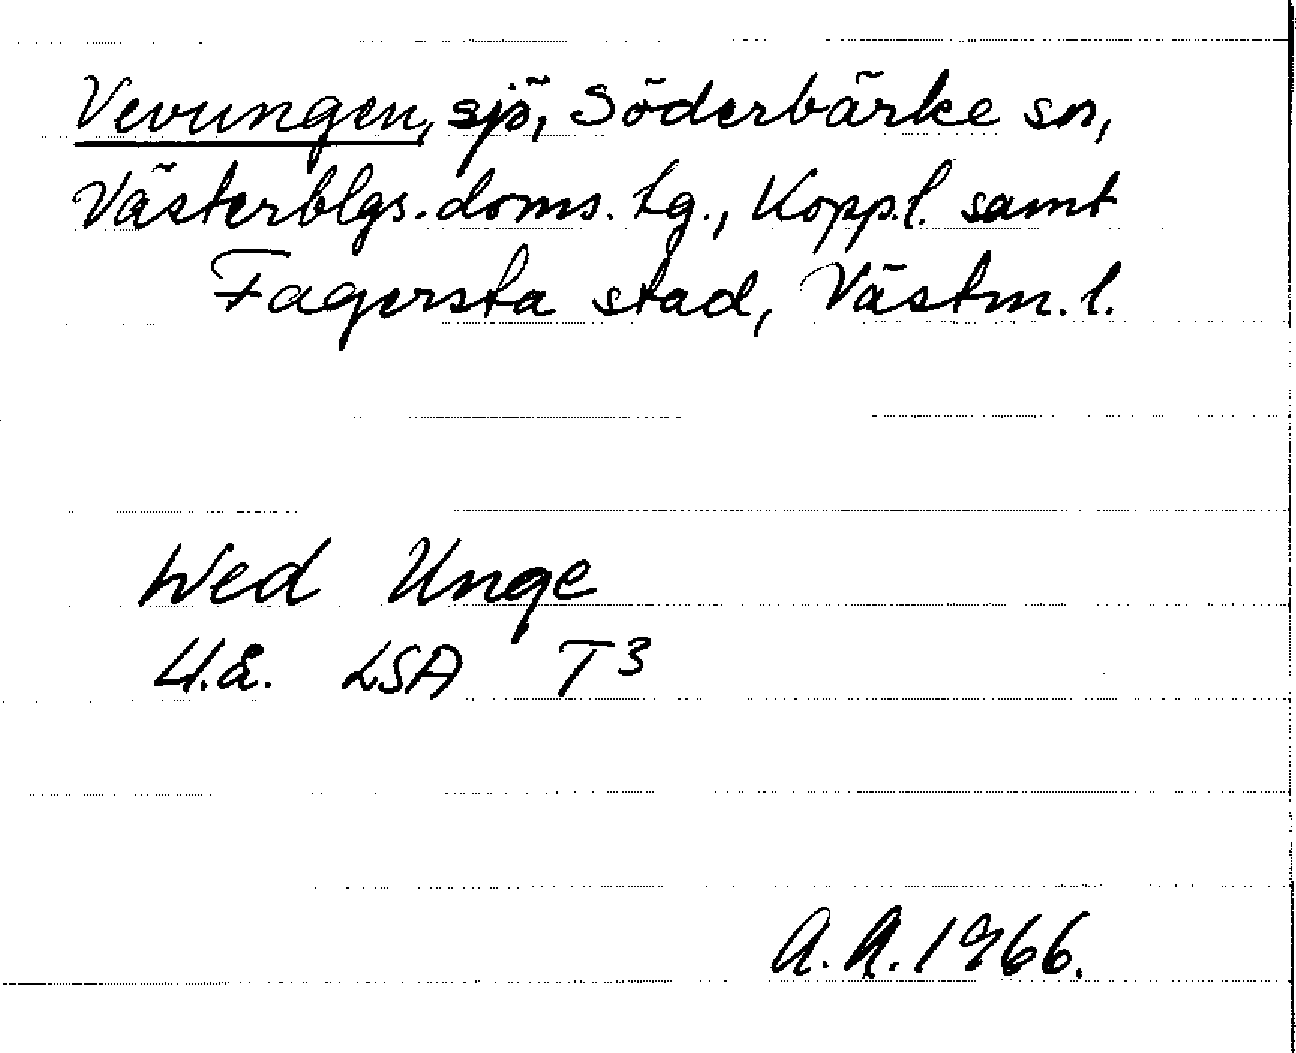 Vevungen, sjö, Söderbärke sn,
Västerblgs. doms. tg., Kopp.l. samt
Fagersta stad, Västm. l.
Wed Unge
U.å. LSA T3
A.A. 1966.